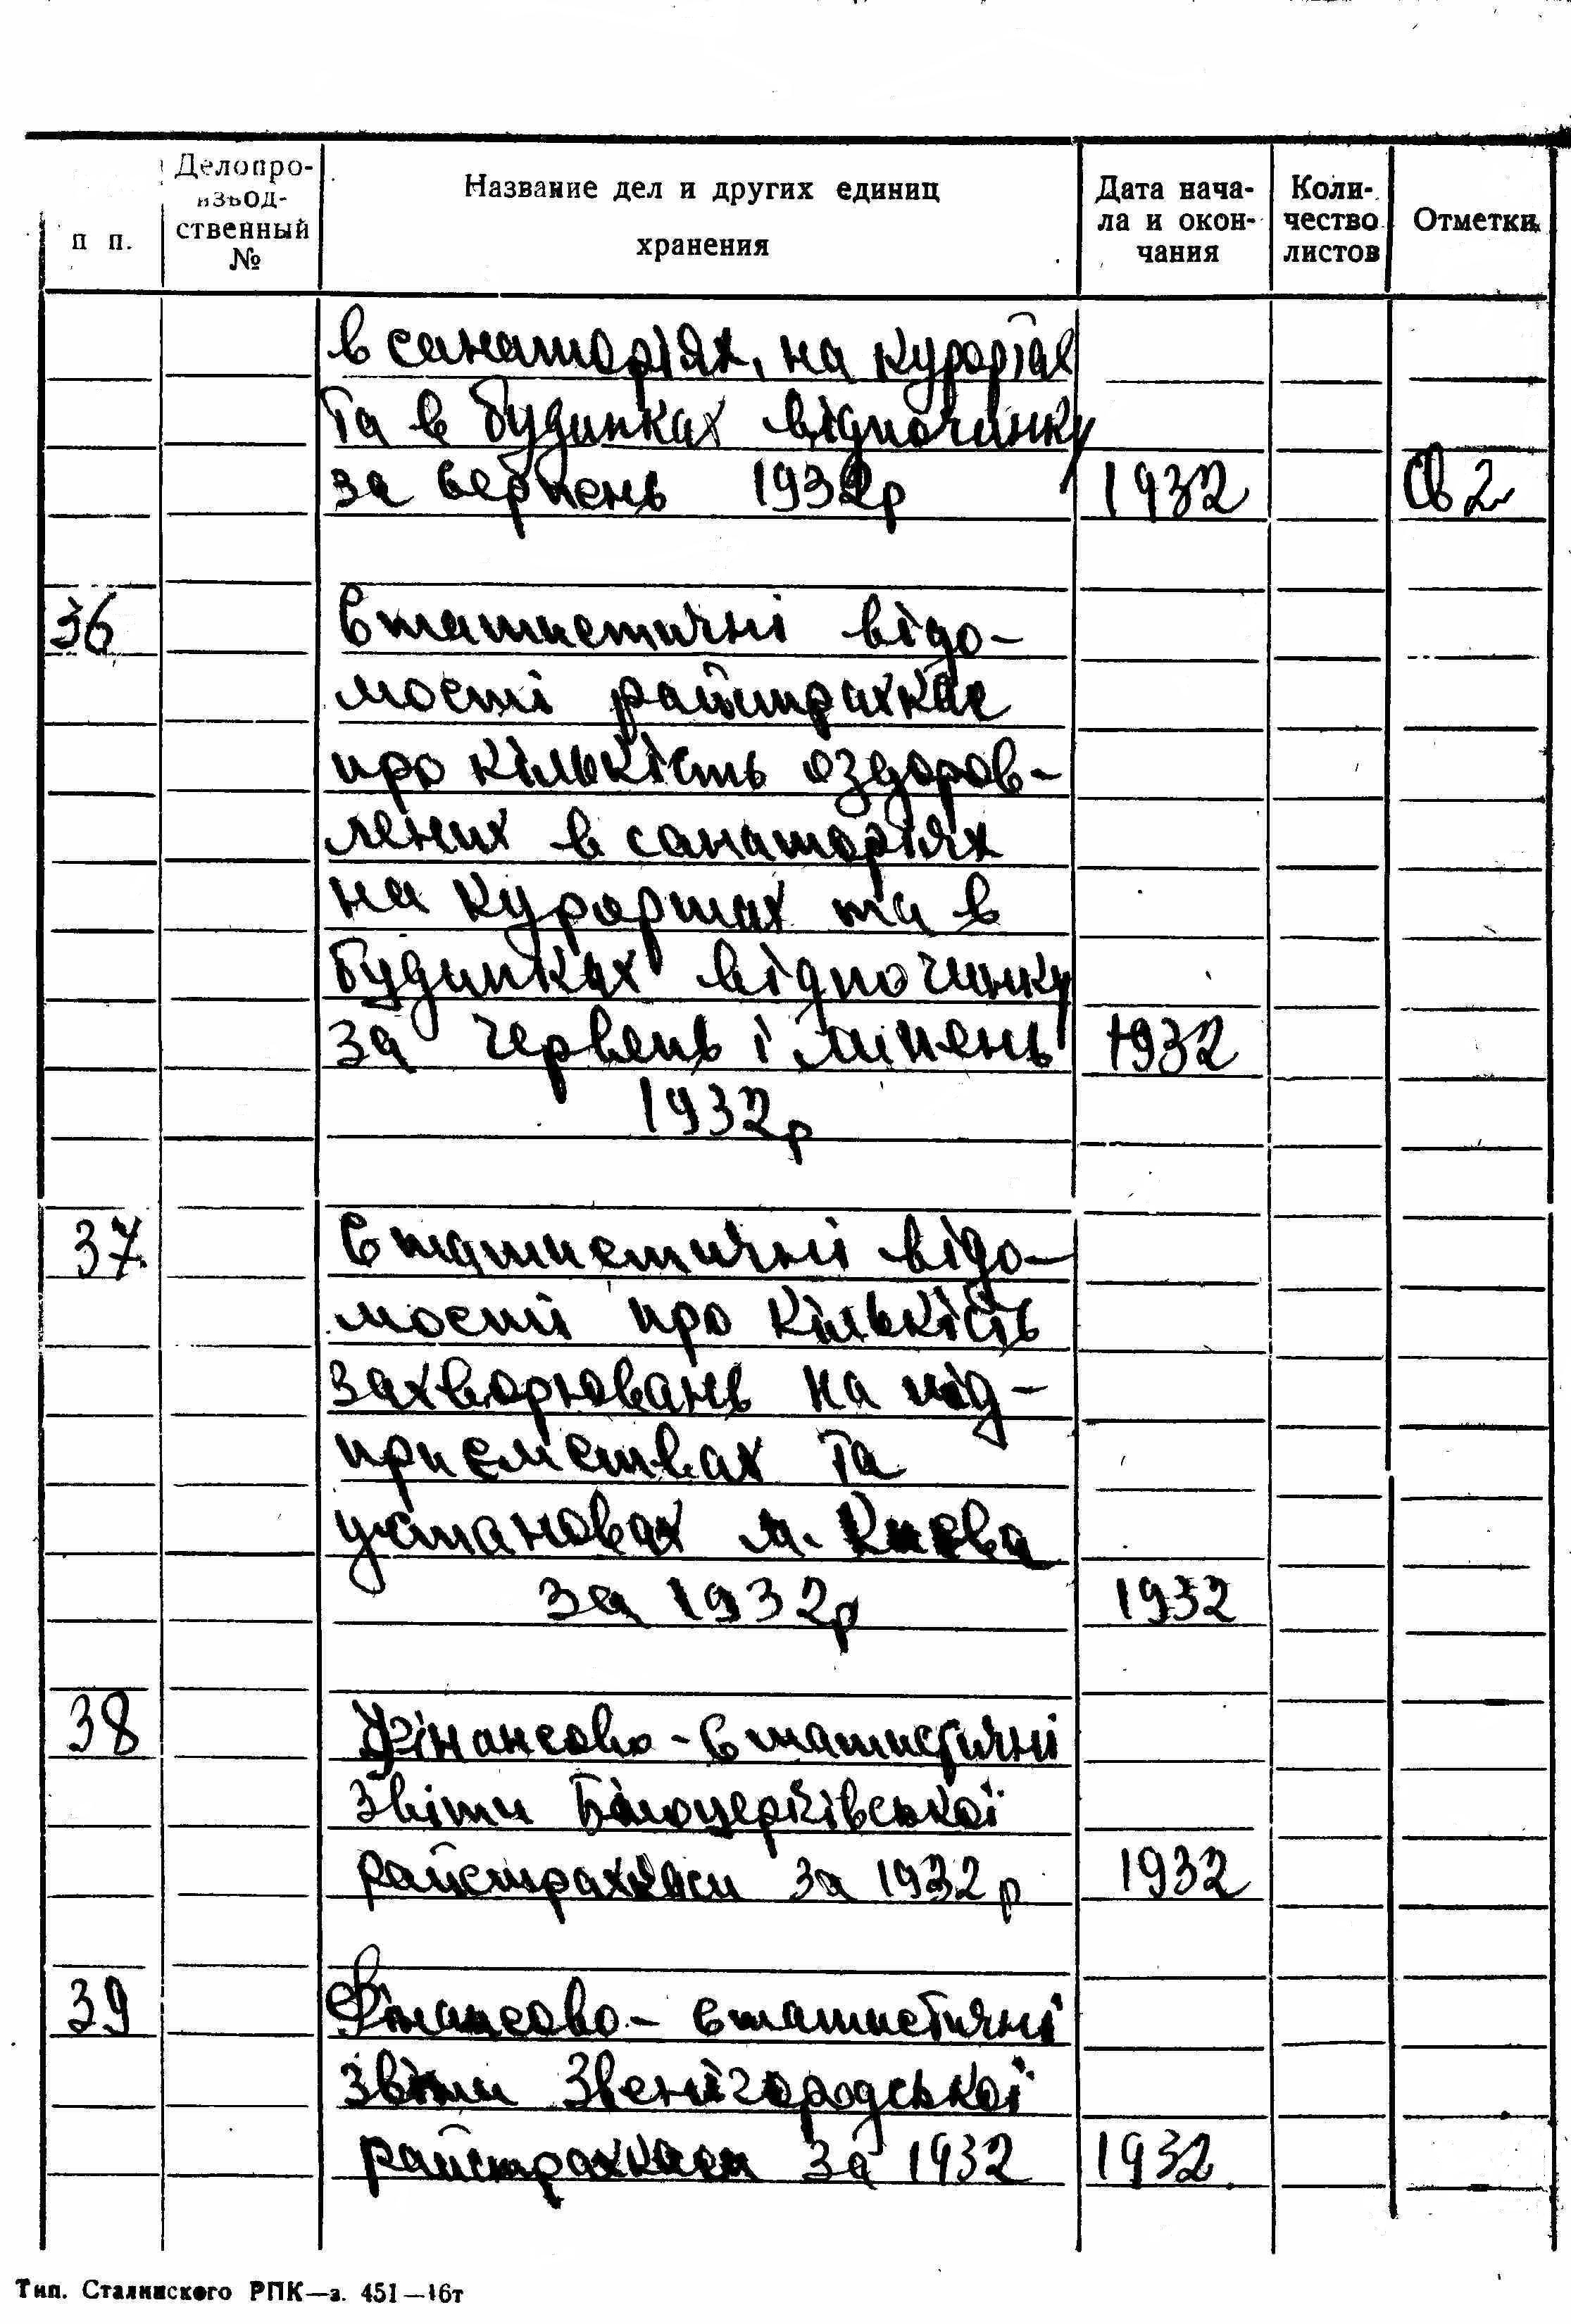 п п.
Делопро-
извод-
ственный
№
Название дел и других единиц
хранения
Дата нача-
ла и окон-
чания
Коли-
чество
листов
Отметки
в санаторіях, на курортах
та в будинках відпочинку
за серпень 1932р 1932 Св 2
36 Статистичні відо-
мості райстрахкас
про кількість оздоров-
лених в санаторіях
на курортах та в
будинках відпочинку
за червень і липень 1932
1932р
37 Статистичні відо-
мості про кількість
захворювань на під-
приємствах та
установах м. Києва
за 1932р 1932
38 Фінансово-статистичні
звіти Білоцерківської
райстрахкаси за 1932 р 1932
39 Фінансово-статистичні
звіти Звенігородської
райстрахкаси за 1932 1932
Тип. Сталинского РПК—з. 451—16т